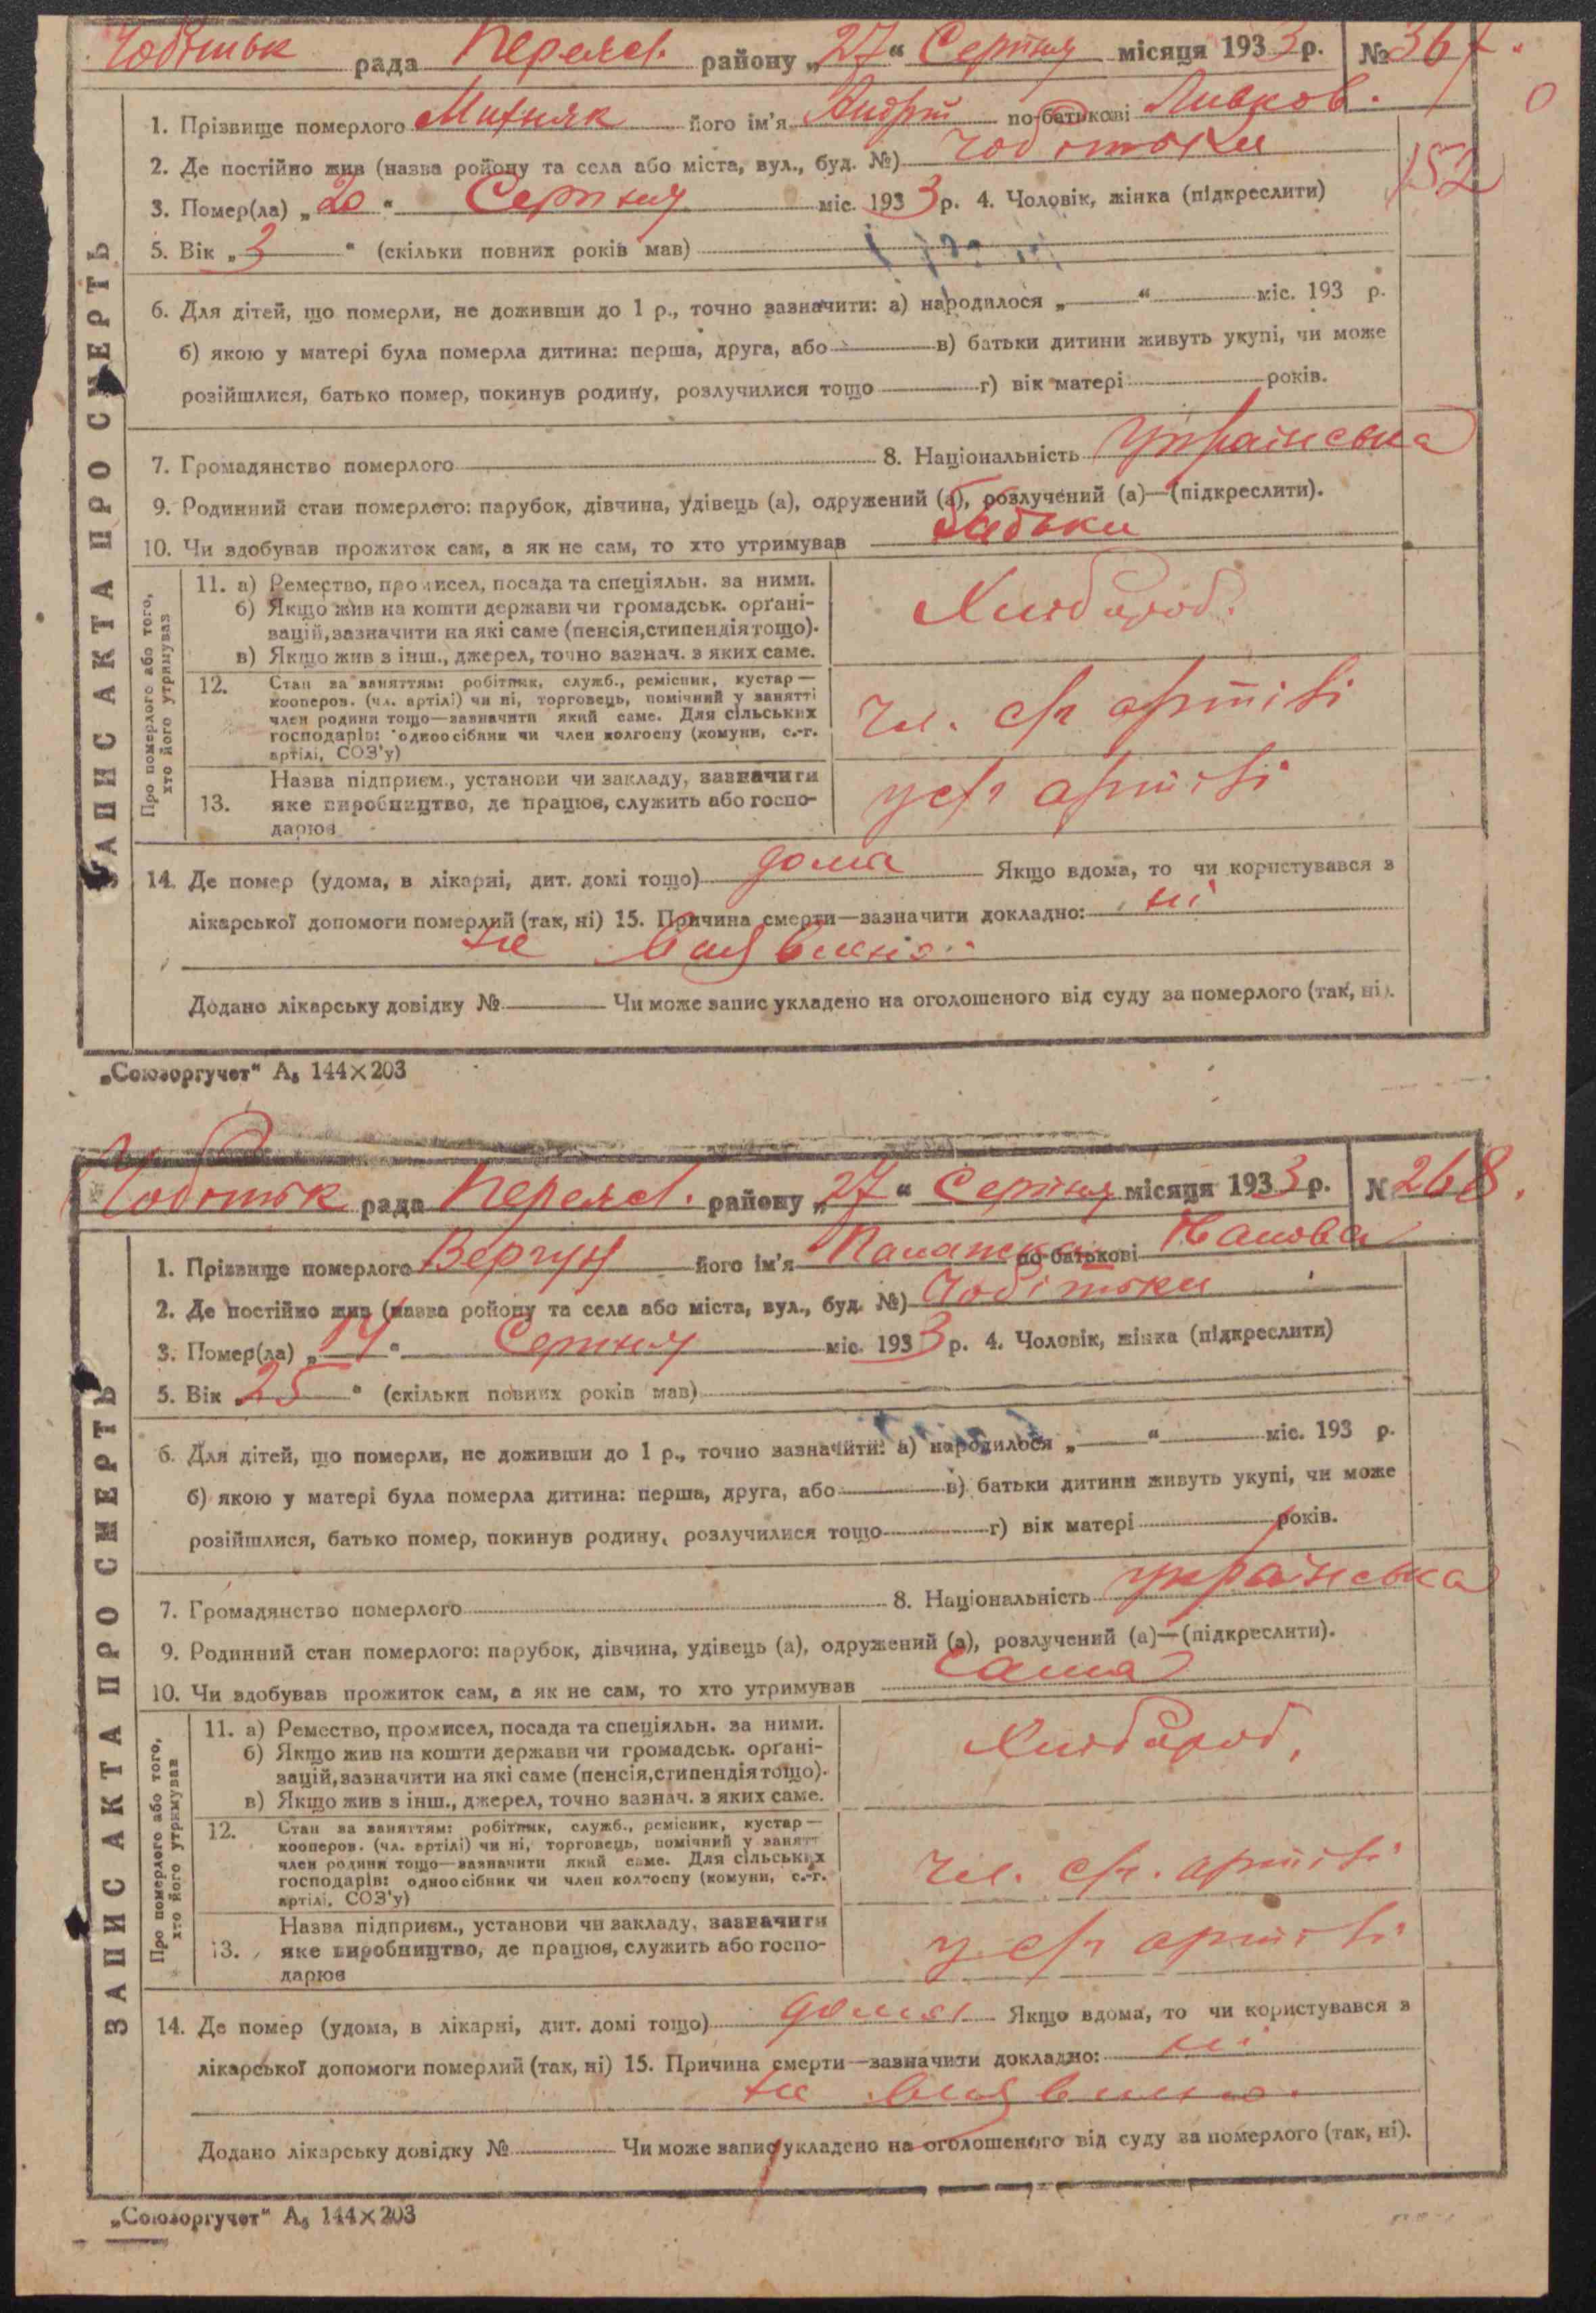 Чобітьк рада Переясл. району „27“ Серпня місяця 1933 р. № 367.
152
1. Прізвище померлого Михняк його ім'я Андрій по-батькові
2. Де постійно жив (назва ройону та села або міста, вул., буд. №) Чобітьки
3. Помер(ла) „20“ Серпня міс. 1933 р. 4. Чоловік, жінка (підкреслити)
5. Вік „3“ (скільки повних років мав)
6. Для дітей, що померли, не доживши до 1 р., точно зазначити: а) народилося „ “ міс. 193 р.
б) якою у матері була померла дитина: перша, друга, або в) батьки дитини живуть укупі, чи може
розійшлися, батько помер, покинув родину, розлучилися тощо г) вік матері років.
7. Громадянство померлого 8. Національність українська
9. Родинний стан померлого: парубок, дівчина, удівець (а), одружений (а), розлучений (а)—(підкреслити).
10. Чи здобував прожиток сам, а як не сам, то хто утримував батьки
ЗАПИС АКТА ПРО СМЕРТЬ
Про померлого або того, хто його утримував
11. а) Ремество, промисел, посада та спеціяльн. за ними.
б) Якщо жив на кошти держави чи громадськ. орґані-
зацій, зазначити на які саме (пенсія, стипендія тощо).
в) Якщо жив з інш., джерел, точно зазнач. з яких саме.
Хлібороб.
12. Стан за заняттям: робітник, служб., ремісник, кустар—
кооперов. (чл. артілі) чи ні, торговець, помічний у занятті
член родини тощо—зазначити який саме. Для сільських
господарів: одноосібник чи член колгоспу (комуни, с.-г.
артілі, СОЗ'у)
чл. с/г артілі
Назва підприєм., установи чи закладу, зазначити
13. яке виробництво, де працює, служить або госпо-
дарює
у с/г артілі
14. Де помер (удома, в лікарні, дит. домі тощо) дома Якщо вдома, то чи користувався з
лікарської допомоги померлий (так, ні) 15. Причина смерти—зазначити докладно: ні
не виявлено
Додано лікарську довідку № Чи може запис укладено на оголошеного від суду за померлого (так, ні).
„Союзоргучет“ А₅ 144×203
Чобітьк рада Переясл. району „27“ Серпня місяця 1933 р. № 268.
1. Прізвище померлого Вергун його ім'я Палажка по-батькові Іванова
2. Де постійно жив (назва ройону та села або міста, вул., буд. №) Чобітьки
3. Помер(ла) „14“ Серпня міс. 1933 р. 4. Чоловік, жінка (підкреслити)
5. Вік „25“ (скільки повних років мав)
6. Для дітей, що померли, не доживши до 1 р., точно зазначити: а) народилося „ “ міс. 193 р.
б) якою у матері була померла дитина: перша, друга, або в) батьки дитини живуть укупі, чи може
розійшлися, батько помер, покинув родину, розлучилися тощо г) вік матері років.
7. Громадянство померлого 8. Національність українська
9. Родинний стан померлого: парубок, дівчина, удівець (а), одружений (а), розлучений (а)—(підкреслити).
10. Чи здобував прожиток сам, а як не сам, то хто утримував сама
ЗАПИС АКТА ПРО СМЕРТЬ
Про померлого або того, хто його утримував
11. а) Ремество, промисел, посада та спеціяльн. за ними.
б) Якщо жив на кошти держави чи громадськ. орґані-
зацій, зазначити на які саме (пенсія, стипендія тощо).
в) Якщо жив з інш., джерел, точно зазнач. з яких саме.
Хлібороб.
12. Стан за заняттям: робітник, служб., ремісник, кустар—
кооперов. (чл. артілі) чи ні, торговець, помічний у занятт
член родини тощо—зазначити який саме. Для сільських
господарів: одноосібник чи член колгоспу (комуни, с.-г.
артілі, СОЗ'у)
чл. с/г. артілі
Назва підприєм., установи чи закладу, зазначити
13. яке виробництво, де працює, служить або госпо-
дарює
у с/г артілі
14. Де помер (удома, в лікарні, дит. домі тощо) дома Якщо вдома, то чи користувався з
лікарської допомоги померлий (так, ні) 15. Причина смерти—зазначити докладно: ні
не виявлено.
Додано лікарську довідку № Чи може запис укладено на оголошеного від суду за померлого (так, ні).
„Союзоргучет“ А₅ 144×203